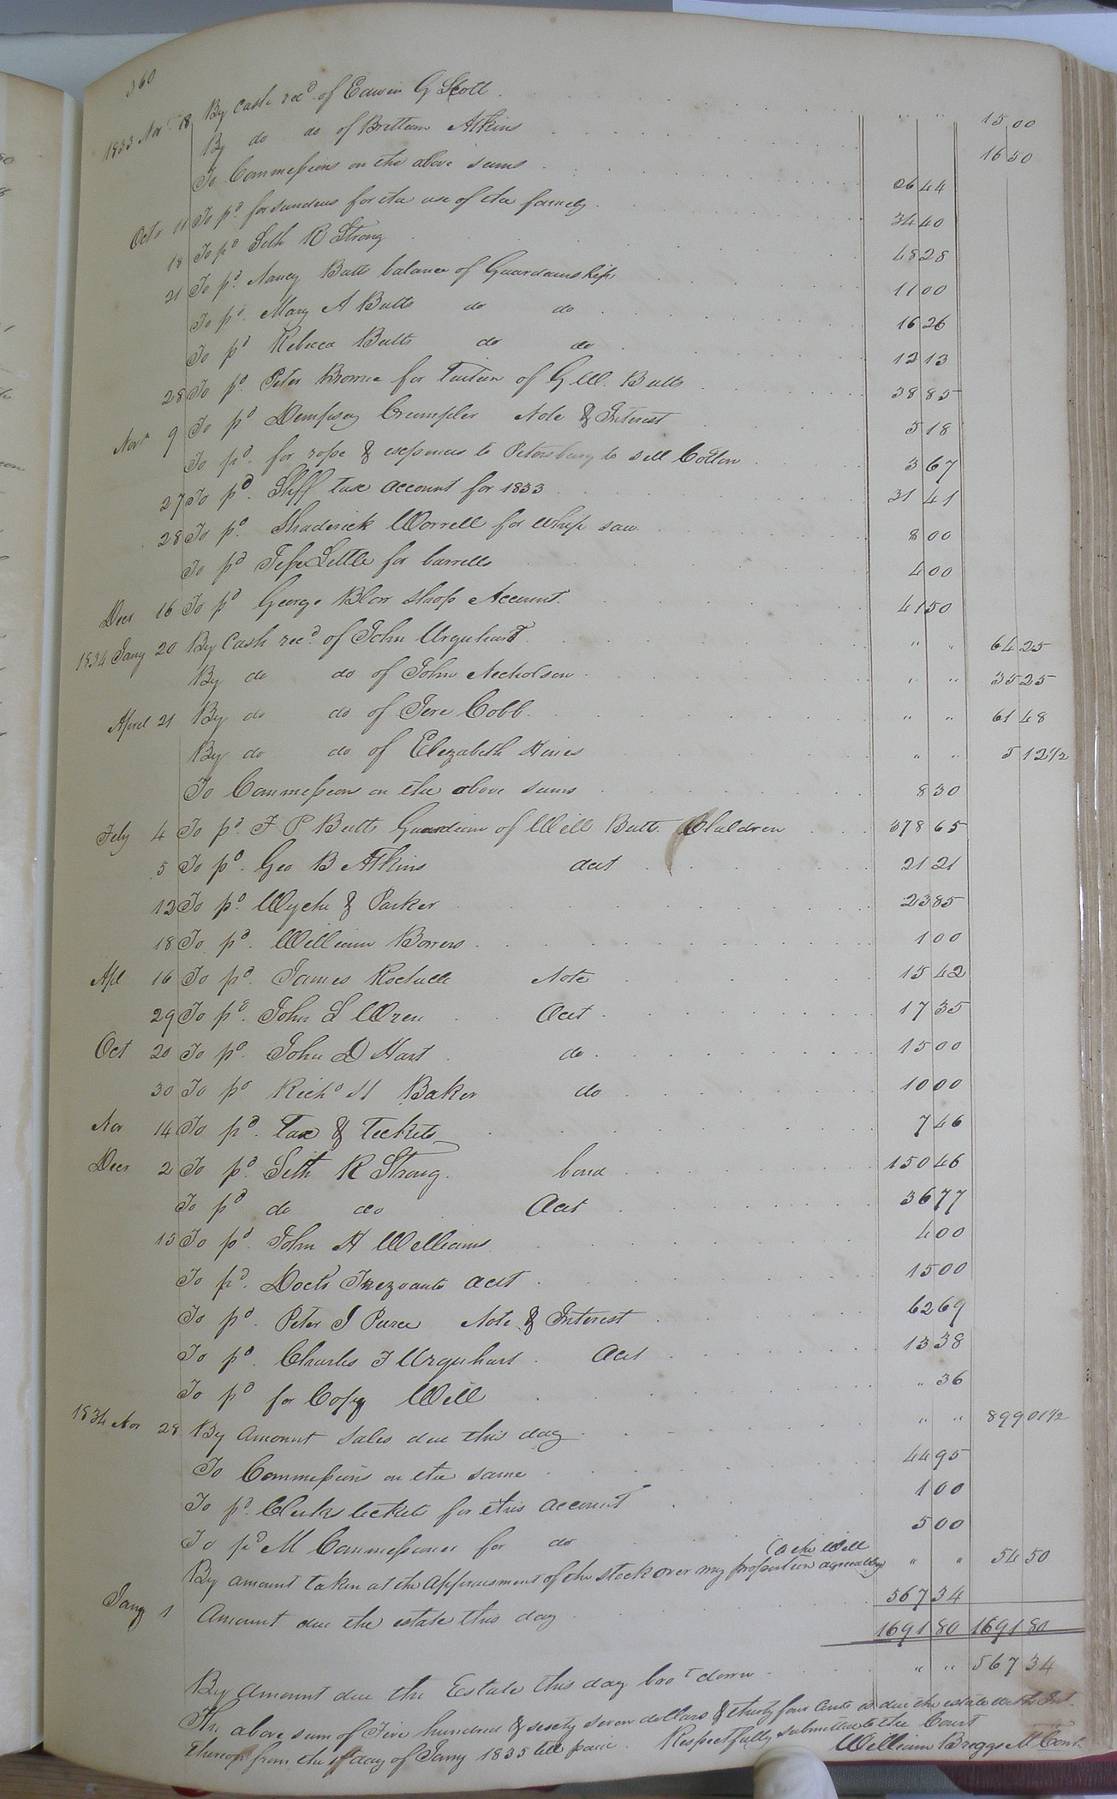 360
1833 Nov 18 By Cash recd of Edwin G Scott " " 15 00
By do do of Brittain Atkins 16 50
To Commissions on the above sums 26 44
Octr 11 To pd for sundries for the use of the family 34 40
18 To pd Seth R Strong 48 28
21 To pd Nancy Butts balance of Guardianship 11 00
To pd Mary A Butts do do 16 26
To pd Rebecca Butts do do 12 13
28 To pd Peter Browne for Tuition of G W. Butts 38 85
Novr 9 To pd Dempsey Crumpler Note & Interest 5 18
To pd for rope & expences to Petersburg to sell Cotton 3 67
27 To pd Shff tax account for 1833 31 41
28 To pd Shaderick Worrell for Whip saw 8 00
To pd Jesse Little for barrells 4 00
Decr 16 To pd George Blow shop Account 41 50
1834 Jany 20 By Cash recd of John Urquhart " " 64 25
By do do of John Nicholson " " 35 25
April 21 By do do of Jere Cobb " " 61 48
By do do of Elizabeth Hines " " 5 12 1/2
To Commissions on the above sums 8 30
Feby 4 To pd F P Butts Guardian of Will Butts Children 378 65
5 To pd Geo B Atkins acct 21 21
12 To pd Wyche & Parker 23 85
18 To pd William Bowers 1 00
Apl 16 To pd James Rochelle Note 15 42
29 To pd John S Wren Acct 17 35
Oct 20 To pd John D Hart do 15 00
30 To pd Richd H Baker do 10 00
Nov 14 To pd Tax & Tickets 7 46
Decr 2 To pd Seth R Strong bond 150 46
To pd do do Acct 36 77
15 To pd John H Williams 4 00
To pd Doctr Trezvants acct 15 00
To pd Peter J Purce Note & Interest 62 69
To pd Charles F Urquhart Acct 13 38
To pd for Copy Will " 36
1834 Nov 28 By Amount Sales due this day " " 899 01 1/2
To Commissions on the same 44 95
To pd Clerks tickets for this account 1 00
To pd M Commissioner for do 5 00
By amount taken at the Appraisment of the stock over my proportion agreeably to the Will " " 54 50
Jany 1 Amount due the estate this day 567 34
1691 80 1691 80
By Amount due the Estate this day brot down " " 567 34
The above sum of Five hundred & sixty seven dollars & thirty four Cents is due the estate with Int.
thereof from the 1st day of Jany 1835 till paid. Respectfully submitted to the Court
William Briggs M Comr.